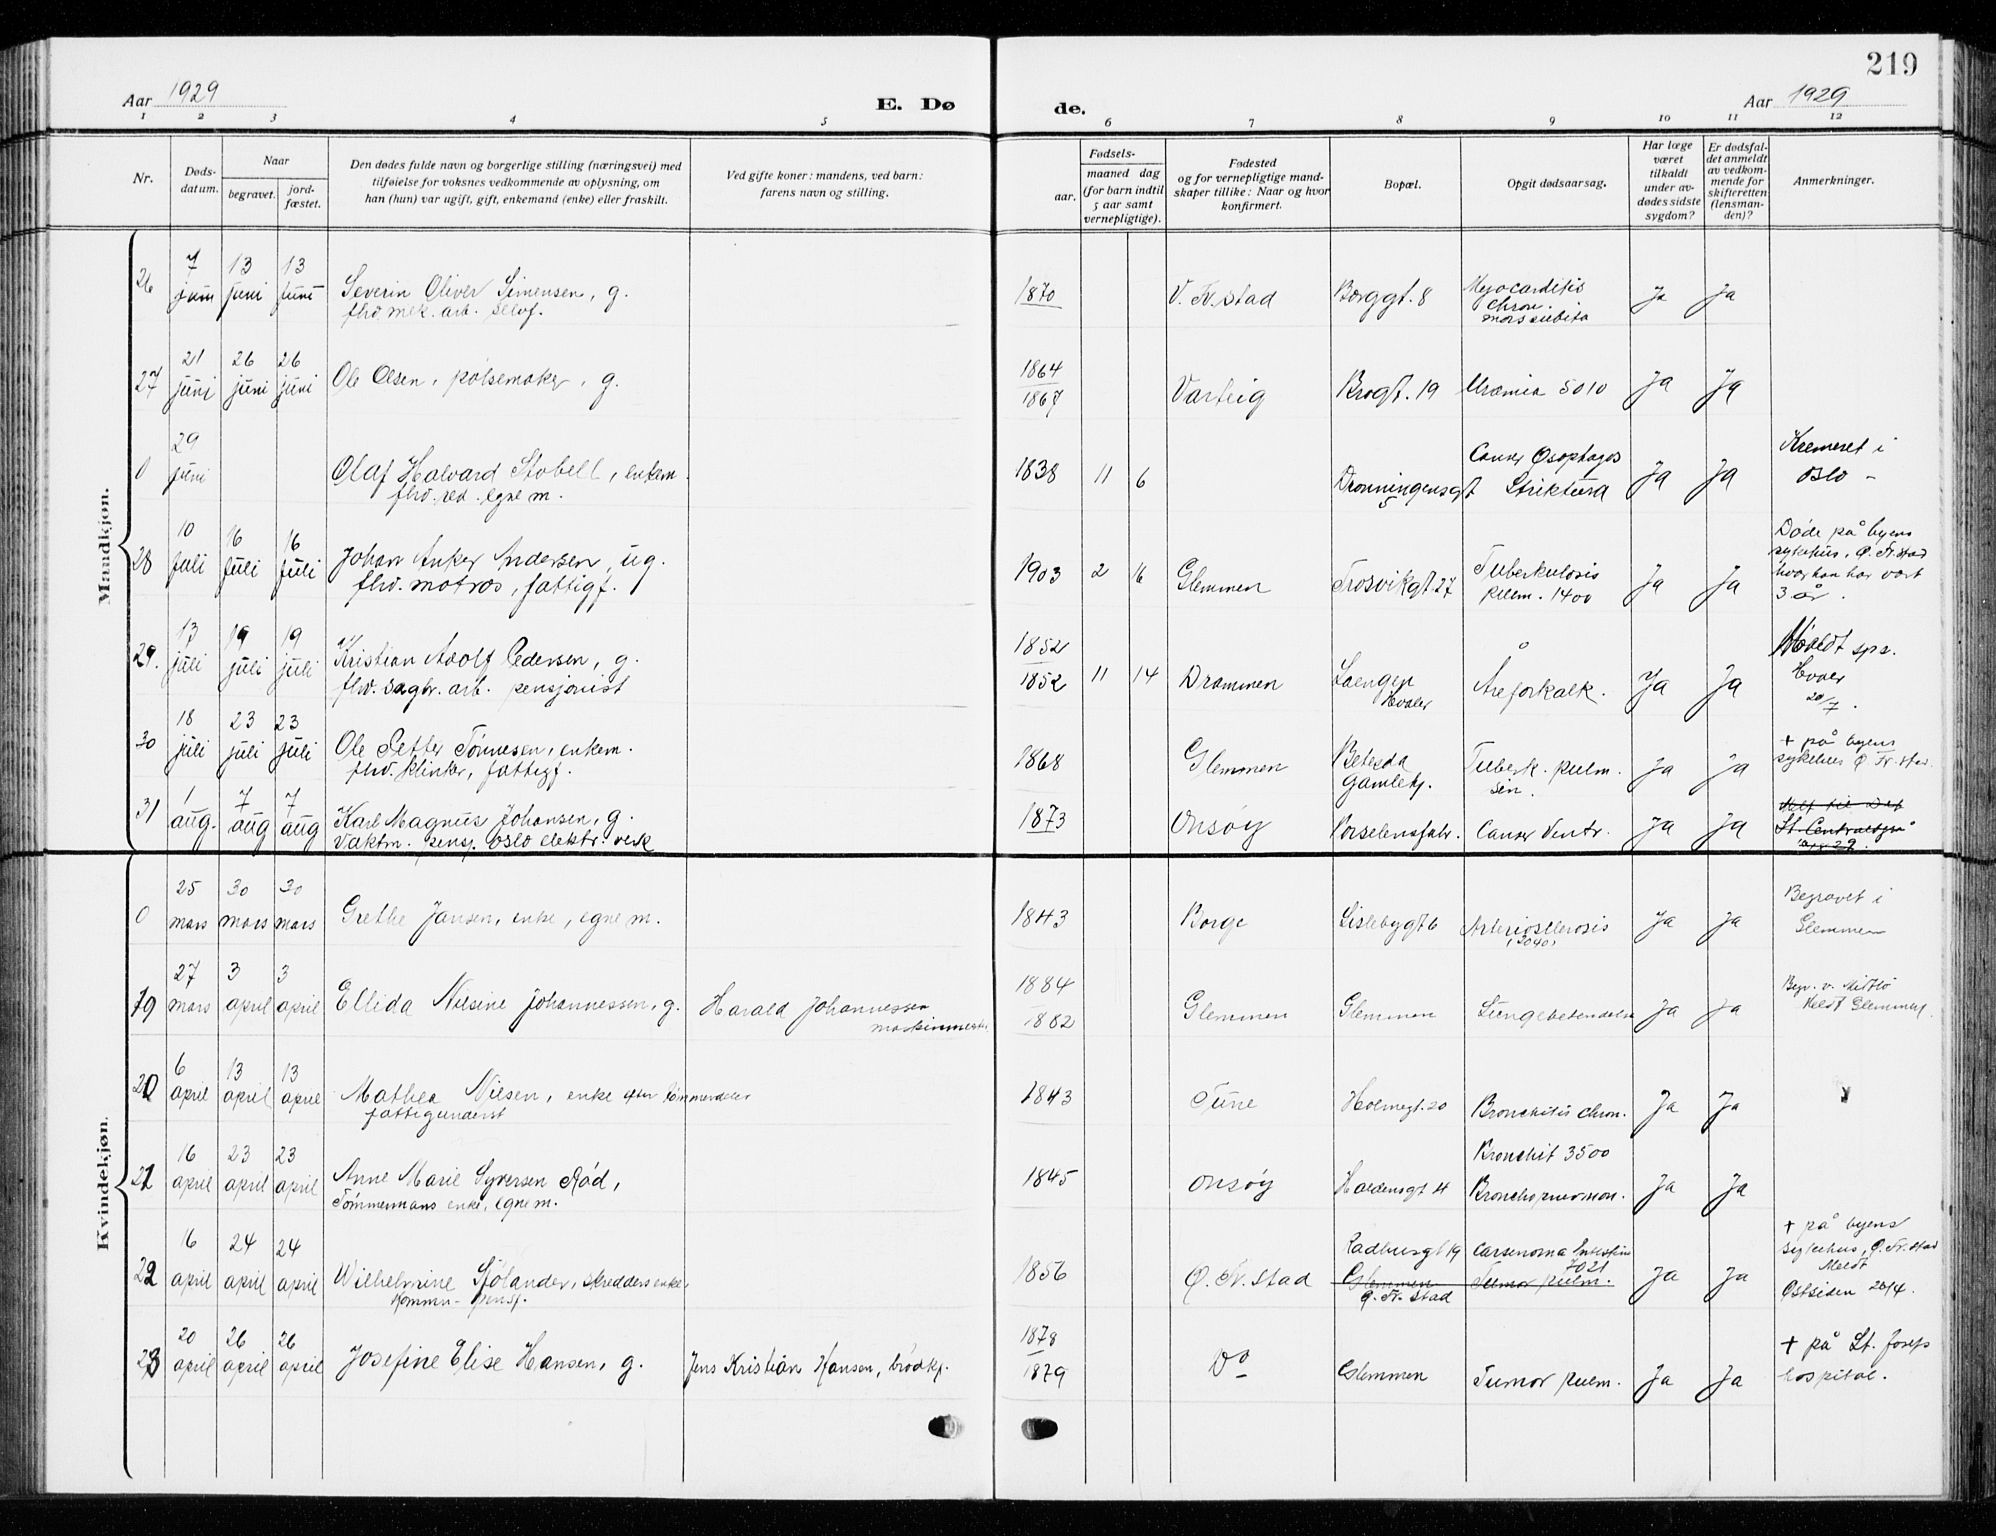 219
Aar 1929
E. Dø
de.
Aar 1929
1 2 3 4 5 6 7 8 9 10 11 12
Nr.
Døds-
datum.
Naar
begravet.
jord-
fæstet.
Den dødes fulde navn og borgerlige stilling (næringsvei) med
tilføielse for voksnes vedkommende av oplysning, om
han (hun) var ugift, gift, enkemand (enke) eller fraskilt.
Ved gifte koner: mandens, ved barn:
farens navn og stilling.
Fødsels-
aar.
maaned dag
(for barn indtil
5 aar samt
vernepligtige).
Fødested
og for vernepligtige mand-
skaper tillike: Naar og hvor
konfirmert.
Bopæl.
Opgit dødsaarsag.
Har læge
været
tilkaldt
under av-
dødes sidste
sygdom?
Er dødsfal-
det anmeldt
av vedkom-
mende for
skifteretten
(lensman-
den)?
Anmerkninger.
Mandkjøn.
7 13 13
26 juni juni juni Severin Oliver Simensen, g. 1870 V. Fr.stad Borggt. 8 Myocarditis Ja Ja
fhv. mek. arb. selvf. chron.
mors subita
21 26 26 1864
27 juni juni juni Ole Olsen, pølsemaker, g. 1867 Varteig Brogt. 19 Uræmia 5010 Ja Ja
29 Kremeret i
0 juni Olaf Halvard Stabell, enkem. 1838 11 6 Dronningensgt Cancer Osophagos Ja Ja Oslo -
fhv. red. egne m. 5 Striktura
10 16 16 Døde på byens
28 juli juli juli Johan Anker Andersen, ug. 1903 2 16 Glemmen Trosvikgt. 27 Tuberkulosis Ja Ja sykehus, Ø. Fr.stad
fhv. matros, fattigf. pulm. 1400 hvor han har vært
3 år.
13 19 19 1852
29. juli juli juli Kristian Adolf Pedersen, g. 1852 11 14 Drammen Hvaler Åreforkalk. Ja Ja spr.
fhv. sagbr. arb. pensjonist Hvaler
20/7.
18 23 23 + på byens
30 juli juli juli Ole Petter Tønnesen, enkem. 1868 Glemmen Betesda Tuberk. pulm. Ja Ja sykehus Ø. Fr.stad.
fhv. klinker, fattigf. Gamlehj. sin.
1 7 7
31 aug. aug aug Karl Magnus Johansen, g. 1873 Onsøy Porselensfabr. Cancer Ventr. Ja Ja
Vaktm. pensj. Oslo elektr. verk
Kvindekjøn.
25 30 30 Begravet i
0 mars mars mars Grethe Jansen, enke, egne m. 1843 Borge Lislebygt 6 Arteriosclerosis Ja Ja Glemmen
(3040)
27 3 3 1884 Begr. v.
19 mars april april Ellida Nilsine Johannessen, g. Harald Johannessen 1882 Glemmen Glemmen Lungebetendelse Ja Ja Meldt Glemmen.
maskinmester.
6 13 13
20 april april april Mathea Nilsen, enke efter tømmerdeler 1843 Tune Holmegt. 20 Bronchitis chron. Ja Ja
fattigunderst
16 23 23 Bronchit 3500
21 april april april Anne Marie Syversen Rød, 1845 Onsøy Haldensgt 4 Bronchopneumon. Ja Ja
Tømmermans enke, egne m.
16 24 24 Radhusgt 19 Carsenoma Intestin + på byens
22 april april april Wilhelmine Sjølander, skredders enke, 1856 Ø. Fr. stad Glemmen 7021 Ja Ja sykehus, Ø. Fr.stad
Kommu- pensj. Ø. Fr. stad Tumor pulm. Meldt
Østsiden 26/4.
20 26 26 1878 + på St. Josefs
23 april april april Josefine Elise Hansen, g. Jens Kristian Hansen, brødkj. 1879 Do Glemmen Tumor pulm. Ja Ja hospital.